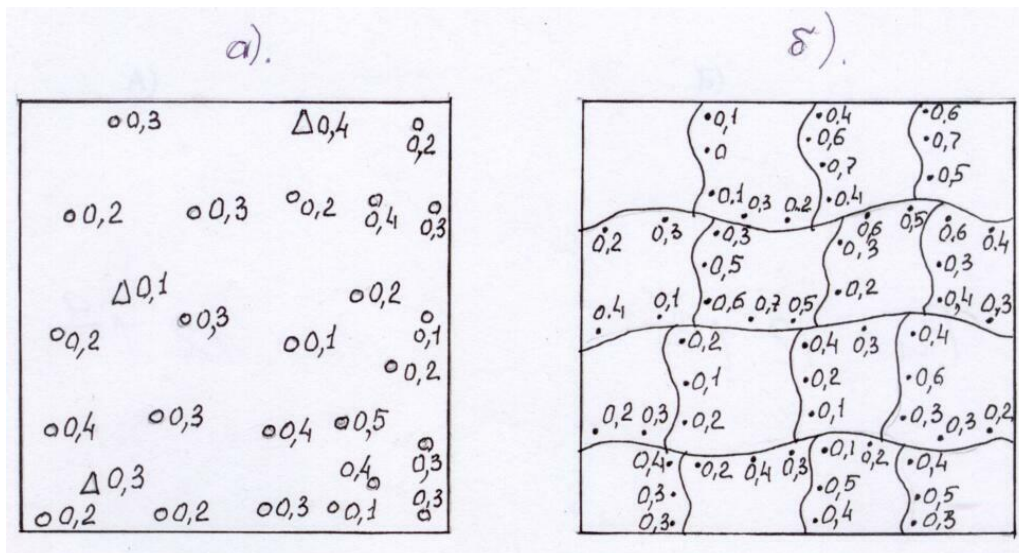 а).
б).
0,3
0,4
0,2
0,2
0,3
0,2
0,4
0,3
0,1
0,2
0,3
0,2
0,1
0,1
0,2
0,4
0,3
0,4
0,5
0,3
0,4
0,3
0,3
0,2
0,2
0,3
0,1
0,1
0,4
0,6
0
0,6
0,7
0,7
0,5
0.1
0,3
0.2
0.4
0,2
0,3
0,3
0,6
0,5
0,6
0.4
0,3
0,5
0,3
0.4
0,1
0,6
0,7
0,5
0,2
0,4
0,3
0,2
0,4
0,3
0,4
0,1
0,2
0,6
0,2
0,3
0,2
0,1
0,3
0,3
0,2
0,4
0,2
0,4
0,3
0,1
0,2
0,4
0,3
0,5
0,5
0,3
0,4
0,3